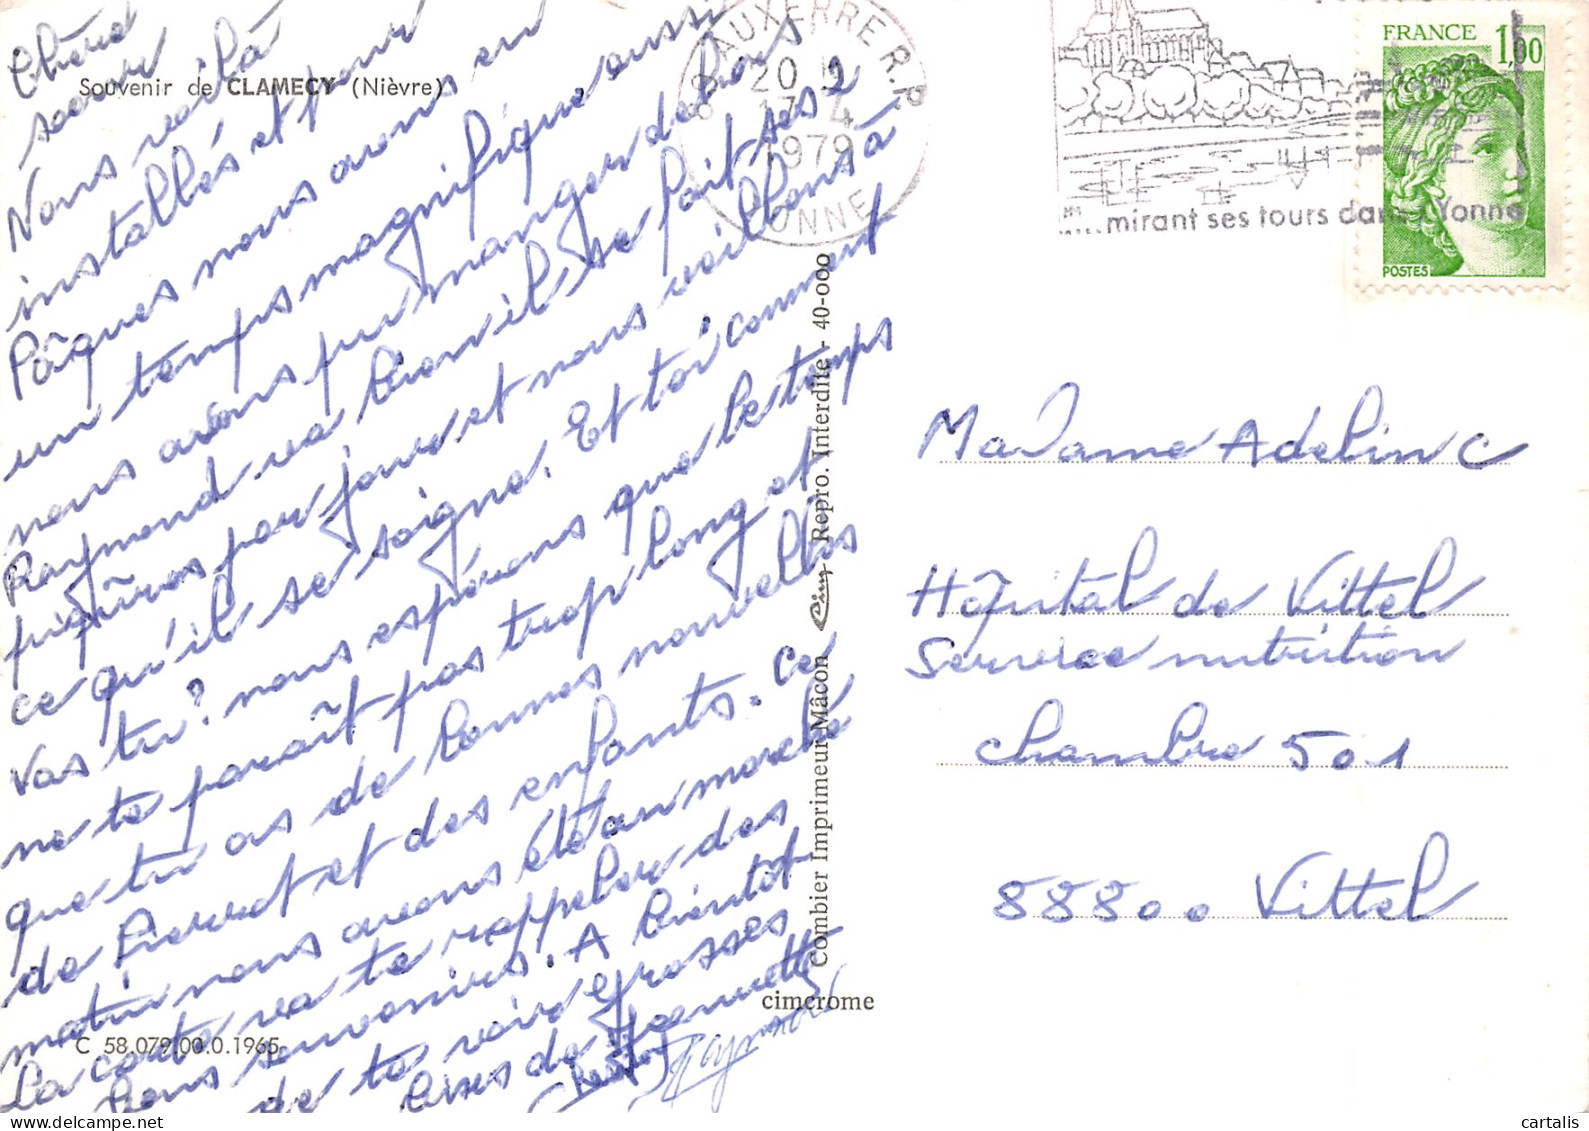 Souvenir de CLAMECY (Nièvre)
Chère
soeur
Nous voilà
installés et pour
Pâques nous avons eu
un temps magnifique aussi
nous avons pu manger dehors
Raymond va bien il se fait ses 2
piqûres par jour et nous veillons à
ce qu'il se soigne. Et toi comment
vas tu? nous espérons que le temps
ne te paraît pas trop long et
que tu as de bonnes nouvelles
de Pierrot et des enfants. Ce
matin nous avons été au marché
La carte va te rappeler des
bons souvenirs. A bientôt
de te voir grosses
bises de Jeannette
Raymond
C 58.079.00.0.1965
cimcrome
Combier Imprimeur Mâcon Cim Repro. Interdite - 40-000
AUXERRE R.P.
20 H
17-4
1979
YONNE
....mirant ses tours dans l'Yonne
FRANCE 1,00
POSTES
Madame Adeline C
Hôpital de Vittel
Service nutrition
chambre 501
88800 Vittel
cartalis
www.delcampe.net